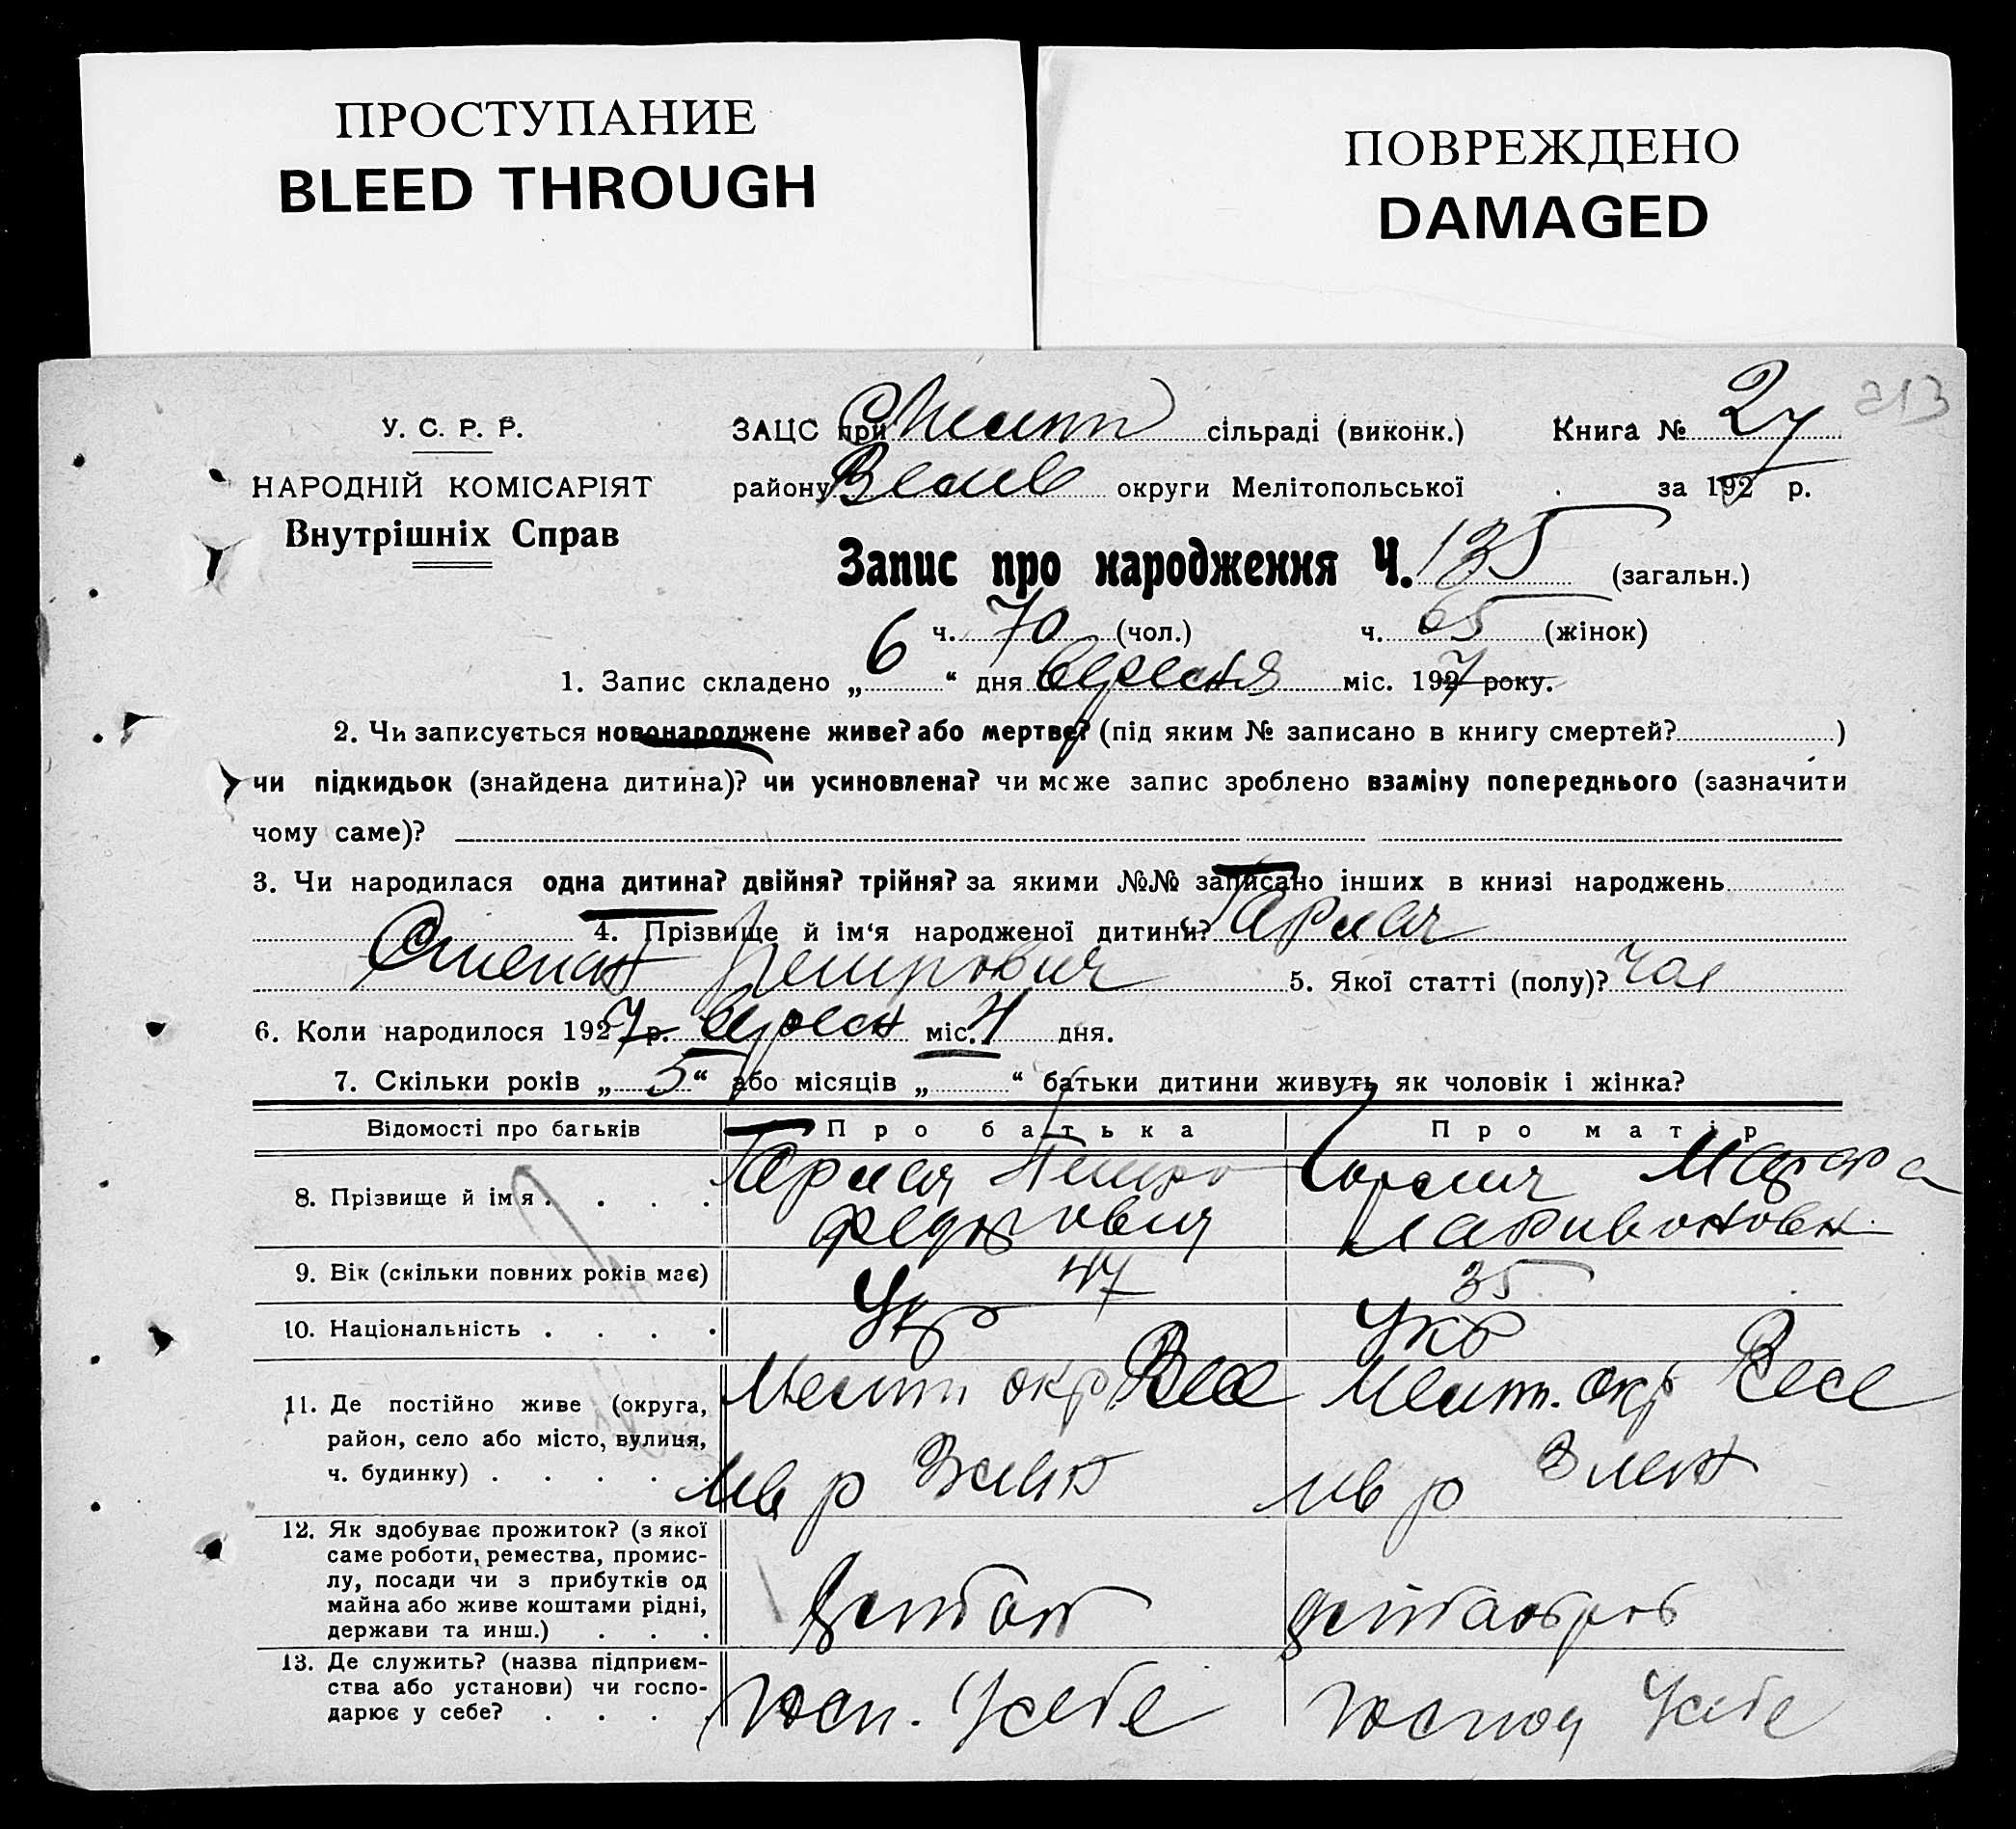 ПРОСТУПАНИЕ
BLEED THROUGH
ПОВРЕЖДЕНО
DAMAGED
213
У. С. Р. Р.
НАРОДНІЙ КОМІСАРІЯТ
Внутрішніх Справ
ЗАЦС при сільраді (виконк.) Книга №
району округи Мелітопольської за 1927 р.
Запис про народження Ч. 135 (загальн.)
ч. 70 (чол.) ч. 65 (жінок)
1. Запис складено „ 6 “ дня вересня міс. 1927 року.
2. Чи записується новонароджене живе? або мертве? (під яким № записано в книгу смертей? )
чи підкидьок (знайдена дитина)? чи усиновлена? чи може запис зроблено взаміну попереднього (зазначити
чому саме)?
3. Чи народилася одна дитина? двійня? трійня? за якими №№ записано інших в книзі народжень
4. Прізвище й ім‘я народженої дитини? Гармач
Степан Петрович 5. Якої статті (полу)? чол
6. Коли народилося 1927 р. вересн міс. 4 дня.
7. Скільки років „ 5 “ або місяців „ “ батьки дитини живуть як чоловік і жінка?
Відомості про батьків Про батька Про матір
8. Прізвище й ім‘я . . . . Гармач Петро Марфа
Федорович Ларивоновн
9. Вік (скільки повних років має) 47 35
10. Національність . . . . Укр Укр
11. Де постійно живе (округа, Меліт окр Весе Меліт. окр Весе
район, село або місто, вулиця,
ч. будинку) . . . . . р р
12. Як здобуває прожиток? (з якої
саме роботи, ремества, промис-
лу, посади чи з прибутків од
майна або живе коштами рідні,
держави та инш.) . . .
13. Де служить? (назва підприєм-
ства або установи) чи госпо- Госп. Усебе Господ Усебе
дарює у себе? . . . .